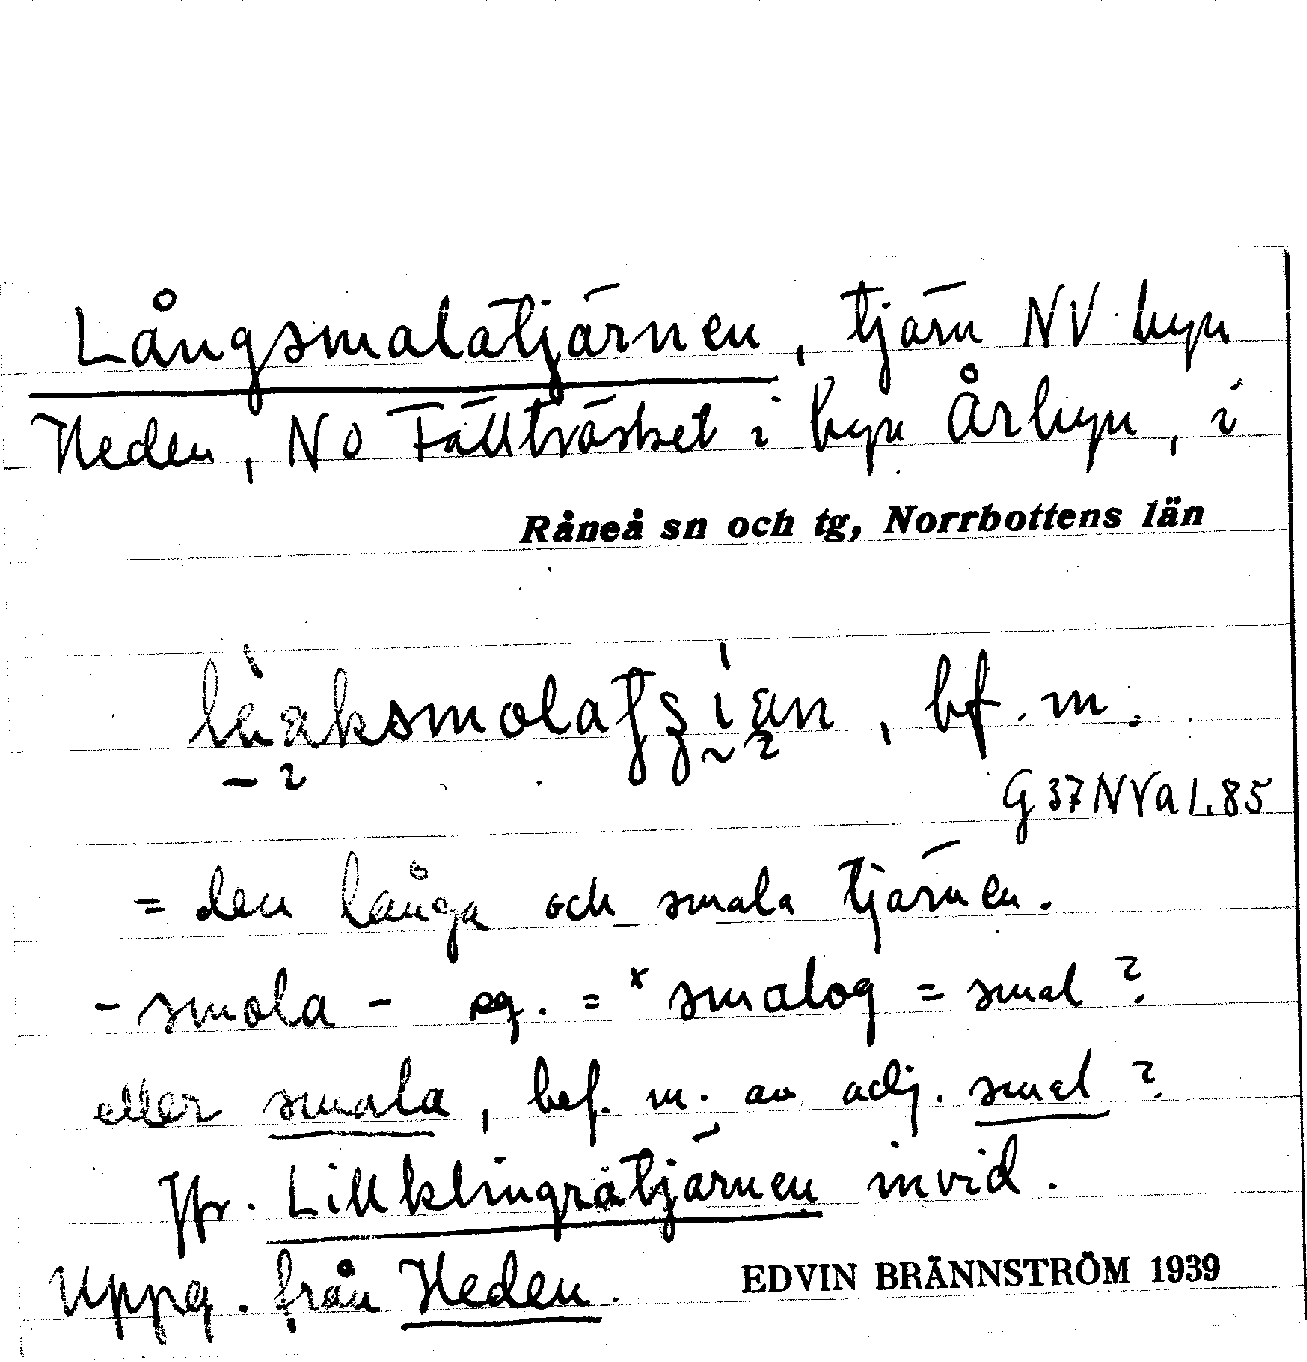 Långsmalatjärnen, tjärn NV byn
Heden, NO Fällträsket i byn Årbyn, i
Råneå sn och tg, Norrbottens län
, bf. m.
G37NVa L.85
= den långa och smala tjärnen.
- smola - eg. = *smalog = smal?
eller smala, bef. m. av adj. smal?
Jfr. Lillklingråtjärnen invid.
Uppg. från Heden.
EDVIN BRÄNNSTRÖM 1939